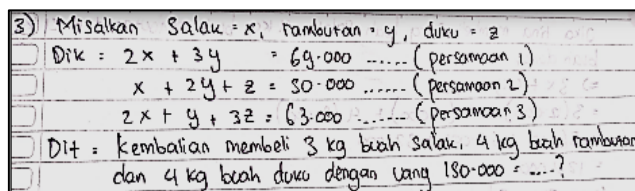 3) Misalkan Salak = x, rambutan = y, duku = z
Dik : 2x + 3y = 69.000 ...... (persamaan 1)
x + 2y + z = 50.000 ...... (persamaan 2)
2x + y + 3z = 63.000 ...... (persamaan 3)
Dit = kembalian membeli 3 kg buah salak, 4 kg buah rambutan
dan 4 kg buah duku dengan uang 150.000 = ....?